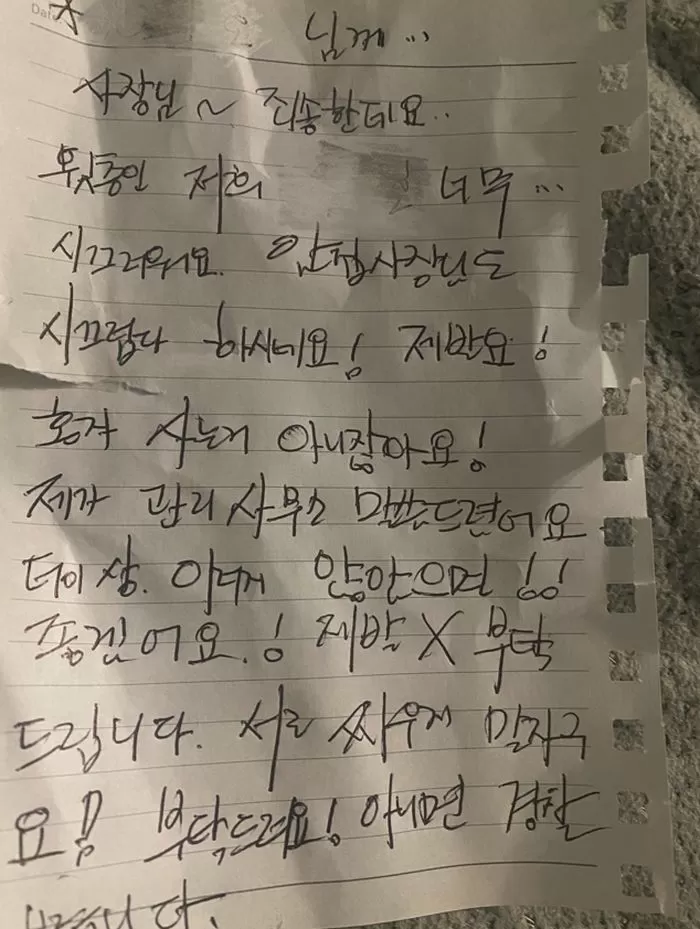 Date.
님께...
사장님~ 죄송한데요..
윗층인 저희 너무...
시끄러워요. 앞집사장님도
시끄럽다 하시네요! 제발요!
혼자 사는거 아니잖아요!
제가 관리사무소 말씀드렸어요
더이상. 이러지 않았으면!!
좋겠어요.! 제발 X 부탁
드립니다. 서로 싸우게 말자구
요!! 부탁드려요! 아니면 경찰